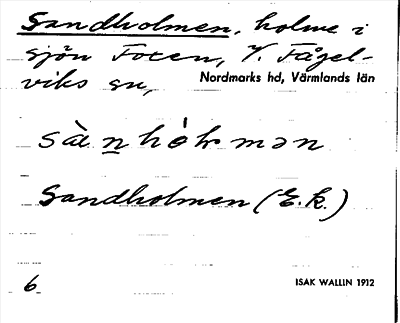 Sandholmen, holme i
sjön Foxen, V. Fågel-
viks sn,
Nordmarks hd, Värmlands län
Sandholmen (E.k.)
6
ISAK WALLIN 1912